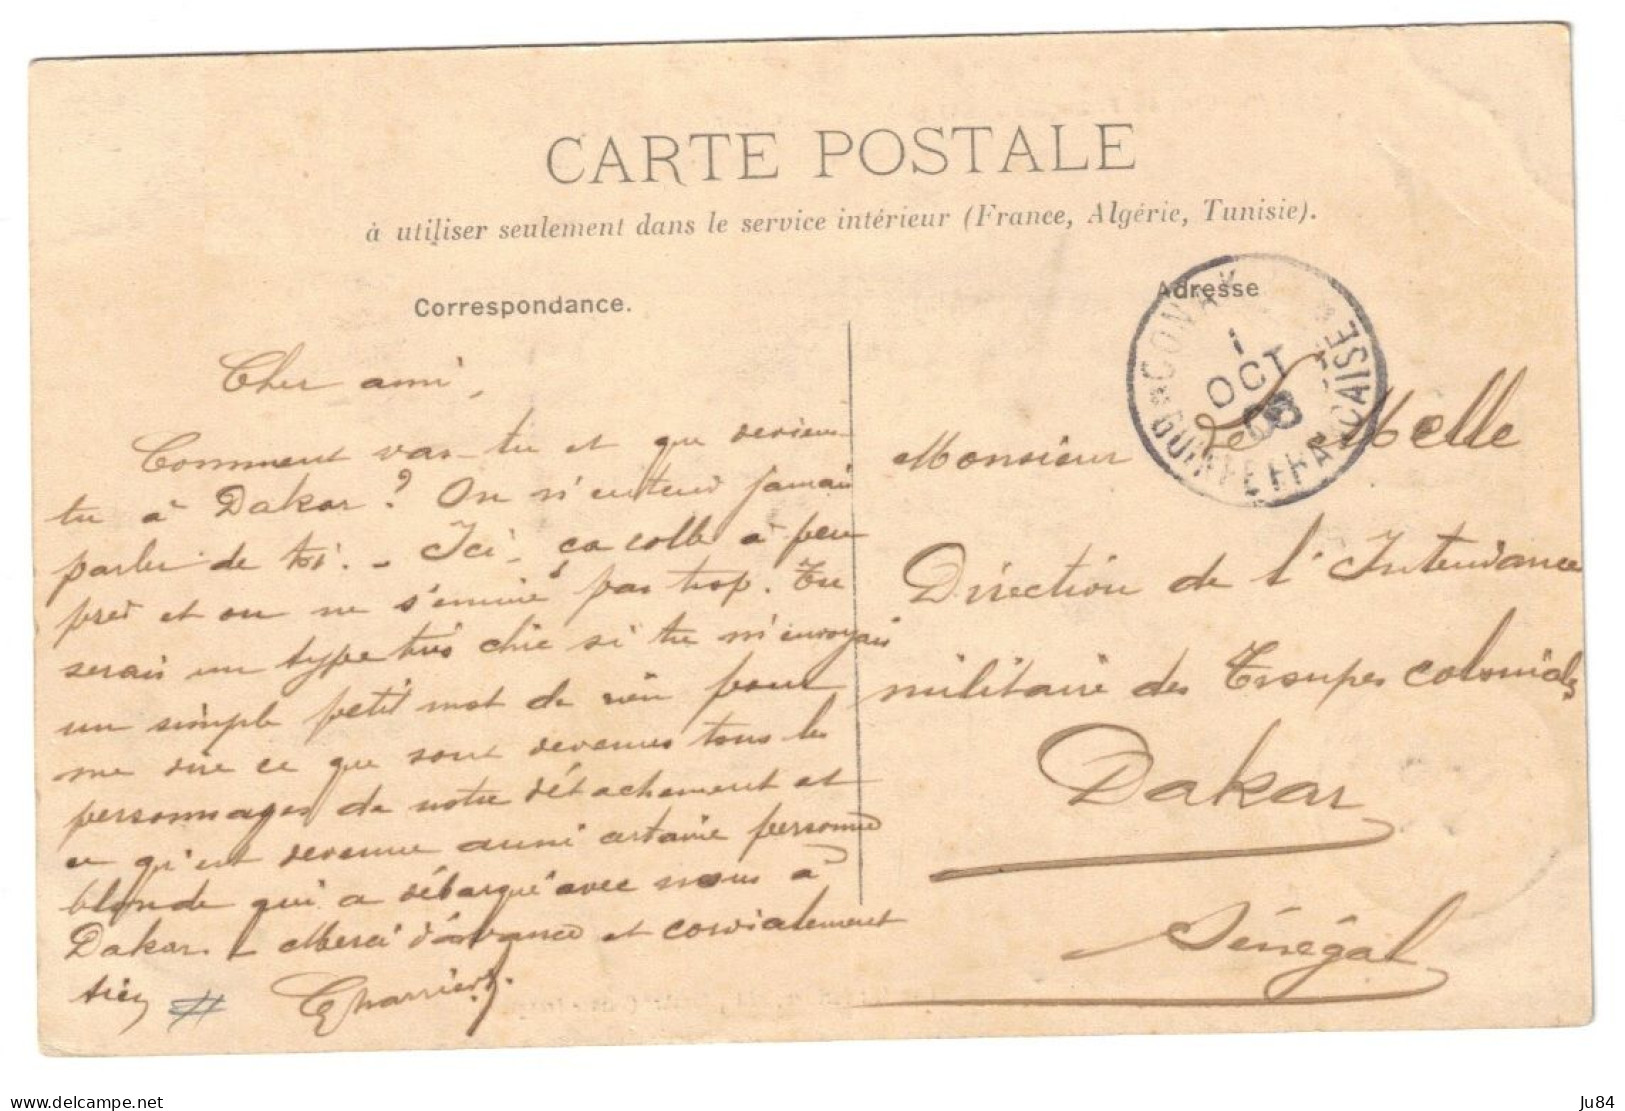 CARTE POSTALE
à utiliser seulement dans le service intérieur (France, Algérie, Tunisie).
Correspondance.
Adresse
CONAKRY
1
OCT
08
GUINEE FRANCAISE
Cher ami,
Comment vas-tu et que deviens
tu à Dakar ? On n'entend jamais
parler de toi. - Ici, ça colle à peu
près et on ne s'ennuie pas trop. Tu
serais un type très chic si tu m'envoyais
un simple petit mot de rien pour
me dire ce que sont devenus tous les
personnages de notre détachement et
ce qu'est devenue aussi certaine personne
blonde qui a débarqué avec nous à
Dakar. - Merci d'avance et cordialement
tien
Charrier
Monsieur Le Melle
Direction de l'Intendance
militaire des Troupes coloniales
Dakar
Sénégal
www.delcampe.net
Ju84